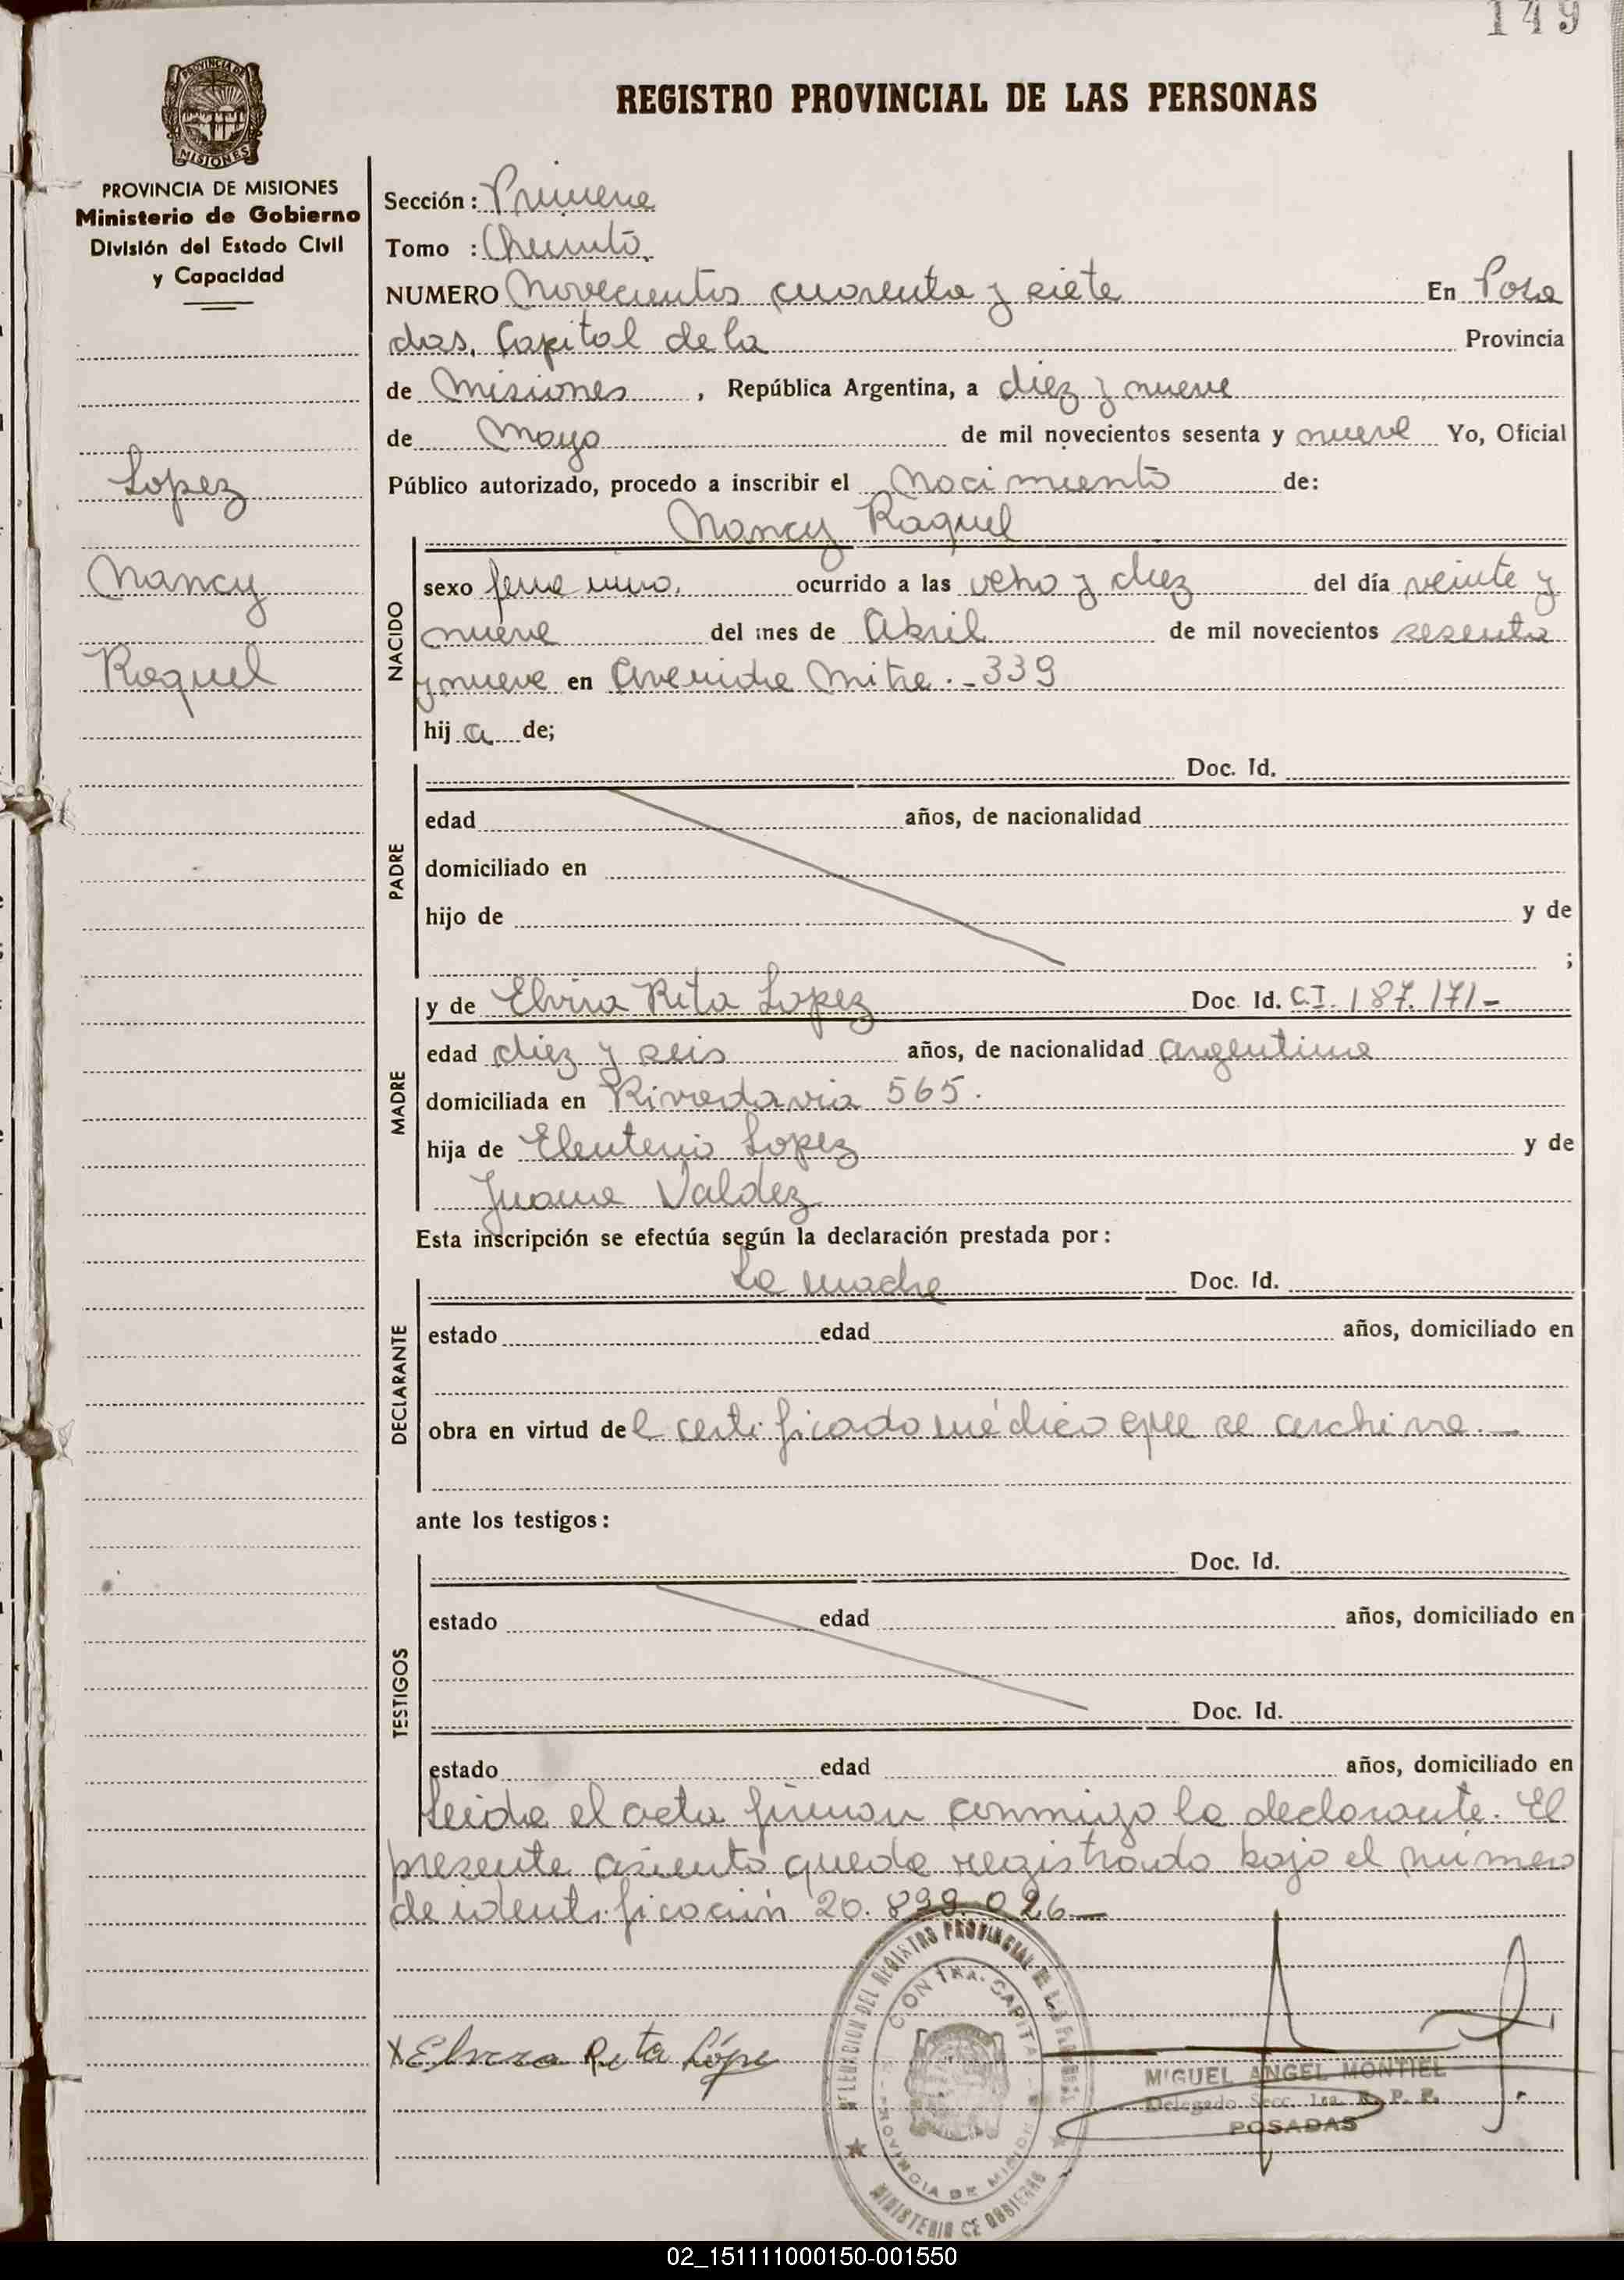 149
PROVINCIA DE
MISIONES
REGISTRO PROVINCIAL DE LAS PERSONAS
PROVINCIA DE MISIONES
Ministerio de Gobierno
División del Estado Civil
y Capacidad
Lopez
Nancy
Raquel
Sección: Primera
Tomo :
NUMERO Novecientos cuarenta y siete En Posa
das, Capital de la Provincia
de Misiones , República Argentina, a diez y nueve
de Mayo de mil novecientos sesenta y nueve Yo, Oficial
Público autorizado, procedo a inscribir el Nacimiento de:
Nancy Raquel
NACIDO
sexo femenino. ocurrido a las ocho y diez del día veinte y
nueve del mes de Abril de mil novecientos sesenta
y nueve en Avenida Mitre.-339
hij a de;
PADRE
Doc. Id.
edad años, de nacionalidad
domiciliado en
hijo de y de
;
MADRE
y de Elvira Rita Lopez Doc. Id. C.I. 187.171-
edad diez y seis años, de nacionalidad argentina
domiciliada en Rivadavia 565.
hija de Eleuterio Lopez y de
Juana Valdez
Esta inscripción se efectúa según la declaración prestada por:
DECLARANTE
La madre Doc. Id.
estado edad años, domiciliado en
obra en virtud del certificado médico que se archiva.-
ante los testigos:
TESTIGOS
Doc. Id.
estado edad años, domiciliado en
Doc. Id.
estado edad años, domiciliado en
Leida el acta firman conmigo la declarante. El
presente asiento queda registrado bajo el número
de identificación 20.899.026-
DELEGACION DEL REGISTRO PROVINCIAL DE LAS PERSONAS
PROVINCIA DE MISIONES
MINISTERIO DE GOBIERNO
X Elvira Rita Lópe
MIGUEL ANGEL MONTIEL
Delegado Secc. 1ra. R. P. P.
POSADAS
02_151111000150-001550